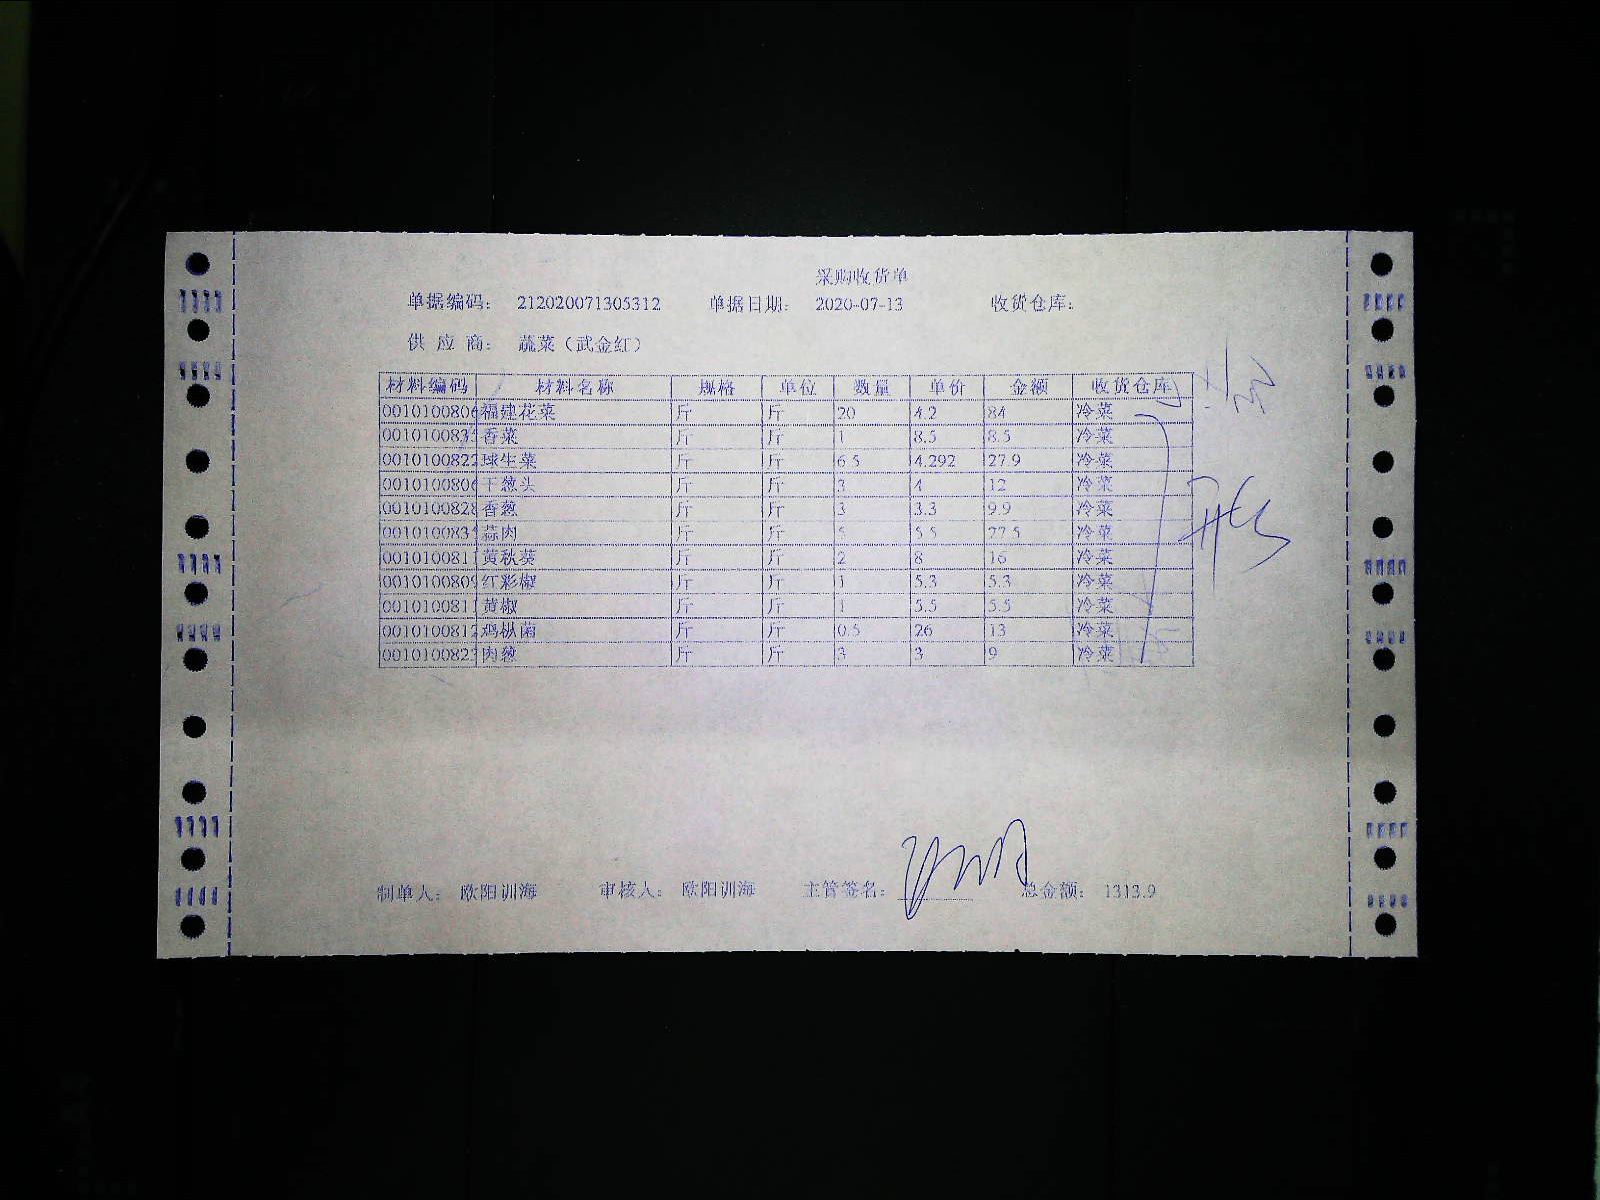 采购收货单
单据编码： 212020071305312 单据日期： 2020-07-13 收货仓库：
供 应 商： 蔬菜（武金红）
材料编码 材料名称 规格 单位 数量 单价 金额 收货仓库
0010100806 福建花菜 斤 斤 20 4.2 84 冷菜
001010083 香菜 斤 斤 1 8.5 8.5 冷菜
0010100822 球生菜 斤 斤 6.5 4.292 27.9 冷菜
0010100806 干葱头 斤 斤 3 4 12 冷菜
0010100828 香葱 斤 斤 3 3.3 9.9 冷菜
001010083 蒜肉 斤 斤 5 5.5 27.5 冷菜
0010100811 黄秋葵 斤 斤 2 8 16 冷菜
0010100809 红彩椒 斤 斤 1 5.3 5.3 冷菜
0010100811 黄椒 斤 斤 1 5.5 5.5 冷菜
0010100812 鸡枞菌 斤 斤 0.5 26 13 冷菜
0010100823 肉葱 斤 斤 3 3 9 冷菜
制单人： 欧阳训海 审核人： 欧阳训海 主管签名： 总金额： 1313.9